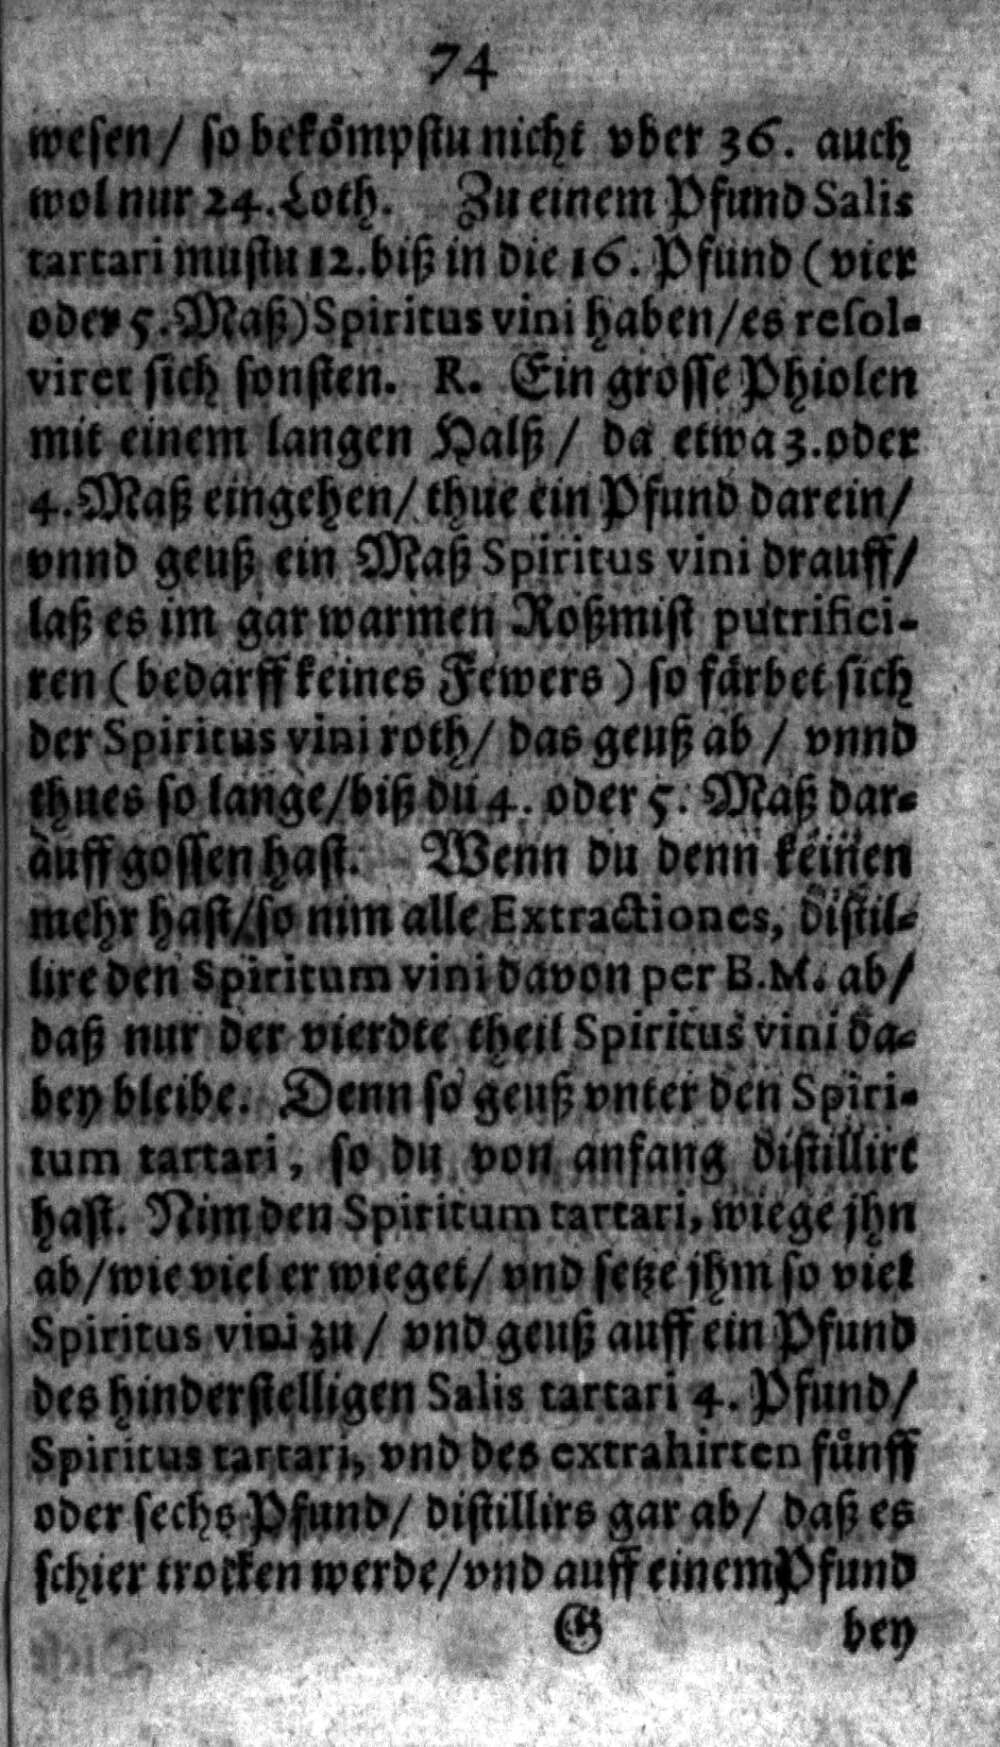 74
wesen/ so bekömpstu nicht vber 36. auch
wol nur 24. Loth. Zu einem Pfund Salis
tartari mustu 12. biß in die 16. Pfund (vier
oder 5. Maß) Spiritus vini haben/ es resol-
viret sich sonsten. R. Ein grosse Phiolen
mit einem langen Halß/ da etwa 3. oder
4. Maß eingehen/ thue ein Pfund darein/
vnnd geuß ein Maß Spiritus vini drauff/
laß es im gar warmen Roßmist putrifici-
ren (bedarff keines Fewers) so färbet sich
der Spiritus vini roth/ das geuß ab/ vnnd
thues so lange/ biß du 4. oder 5. Maß dar-
auff gossen hast. Wenn du denn keinen
mehr hast/ so nim alle Extractiones, distil-
lire den Spiritum vini davon per B.M. ab/
daß nur der vierdte theil Spiritus vini da-
bey bleibe. Denn so geuß vnter den Spiri-
tum tartari, so du von anfang distillirt
hast. Nim den Spiritum tartari, wiege jhn
ab/ wie viel er wieget/ vnd setze jhm so viel
Spiritus vini zu/ vnd geuß auff ein Pfund
des hinderstelligen Salis tartari 4. Pfund/
Spiritus tartari, vnd des extrahirten fünff
oder sechs Pfund/ distillirs gar ab/ daß es
schier trocken werde/ vnd auff einem Pfund
G bey